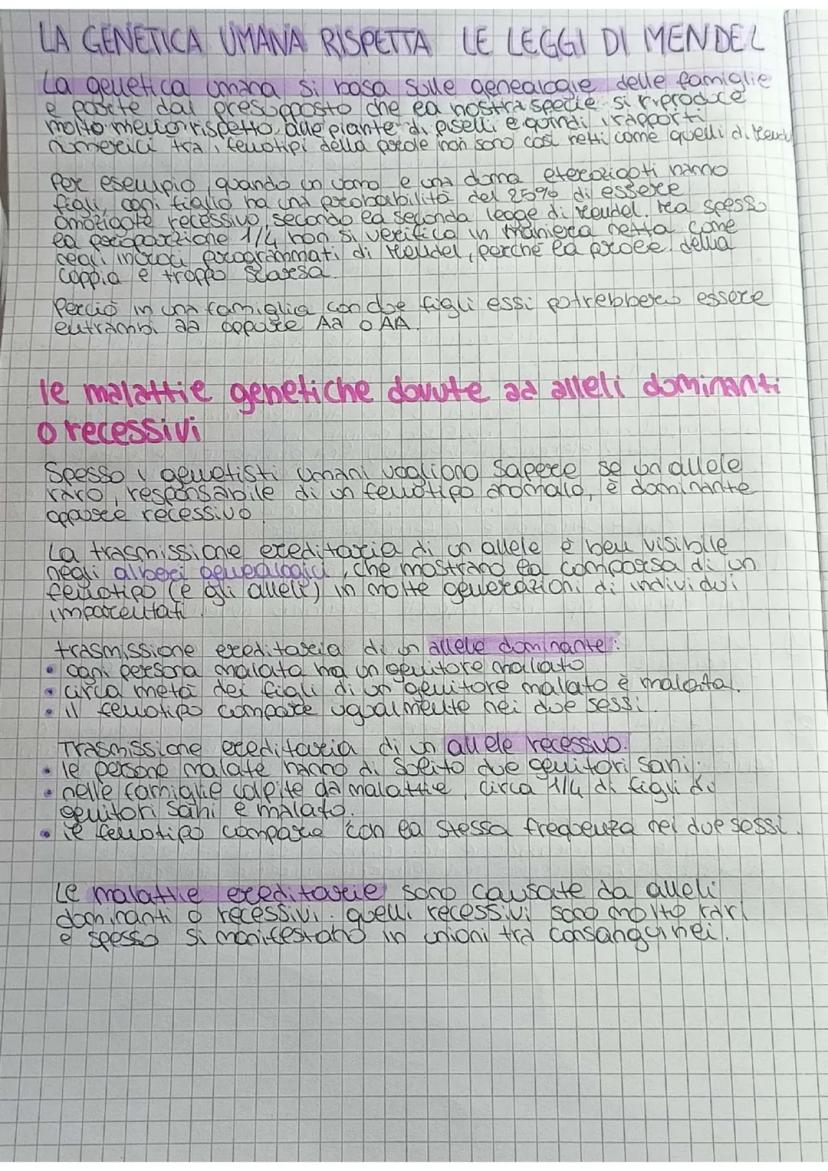 LA GENETICA UMANA RISPETTA LE LEGGI DI MENDEL
La genetica umana si basa sulle genealogie delle famiglie
e parte dal presupposto che la nostra specie si riproduce
molto meno rispetto alle piante di piselli e quindi i rapporti
numerici tra i fenotipi della prole non sono così netti come quelli di Mendel
Per esempio, quando un uomo e una donna eterozigoti hanno
figli, ogni figlio ha una probabilità del 25% di essere
omozigote recessivo, secondo la seconda legge di Mendel. Ma spesso
la proporzione 1/4 non si verifica in maniera netta come
negli incroci programmati di Mendel, perché la prole della
coppia è troppo scarsa.
Perciò in una famiglia con due figli essi potrebbero essere
entrambi aa oppure Aa o AA.
le malattie genetiche dovute ad alleli dominanti
o recessivi
Spesso i genetisti umani vogliono sapere se un allele
raro, responsabile di un fenotipo anomalo, è dominante
oppure recessivo.
La trasmissione ereditaria di un allele è ben visibile
negli alberi genealogici, che mostrano la comparsa di un
fenotipo (e gli alleli) in molte generazioni di individui
imparentati.
trasmissione ereditaria di un allele dominante:
• ogni persona malata ha un genitore malato
• circa metà dei figli di un genitore malato è malata.
• il fenotipo compare ugualmente nei due sessi.
Trasmissione ereditaria di un allele recessivo:
• le persone malate hanno di solito due genitori sani.
• nelle famiglie colpite da malattie, circa 1/4 di figli di
genitori sani è malato.
• il fenotipo compare con la stessa frequenza nei due sessi.
Le malattie ereditarie sono causate da alleli
dominanti o recessivi. quelli recessivi sono molto rari
e spesso si manifestano in unioni tra consanguinei.